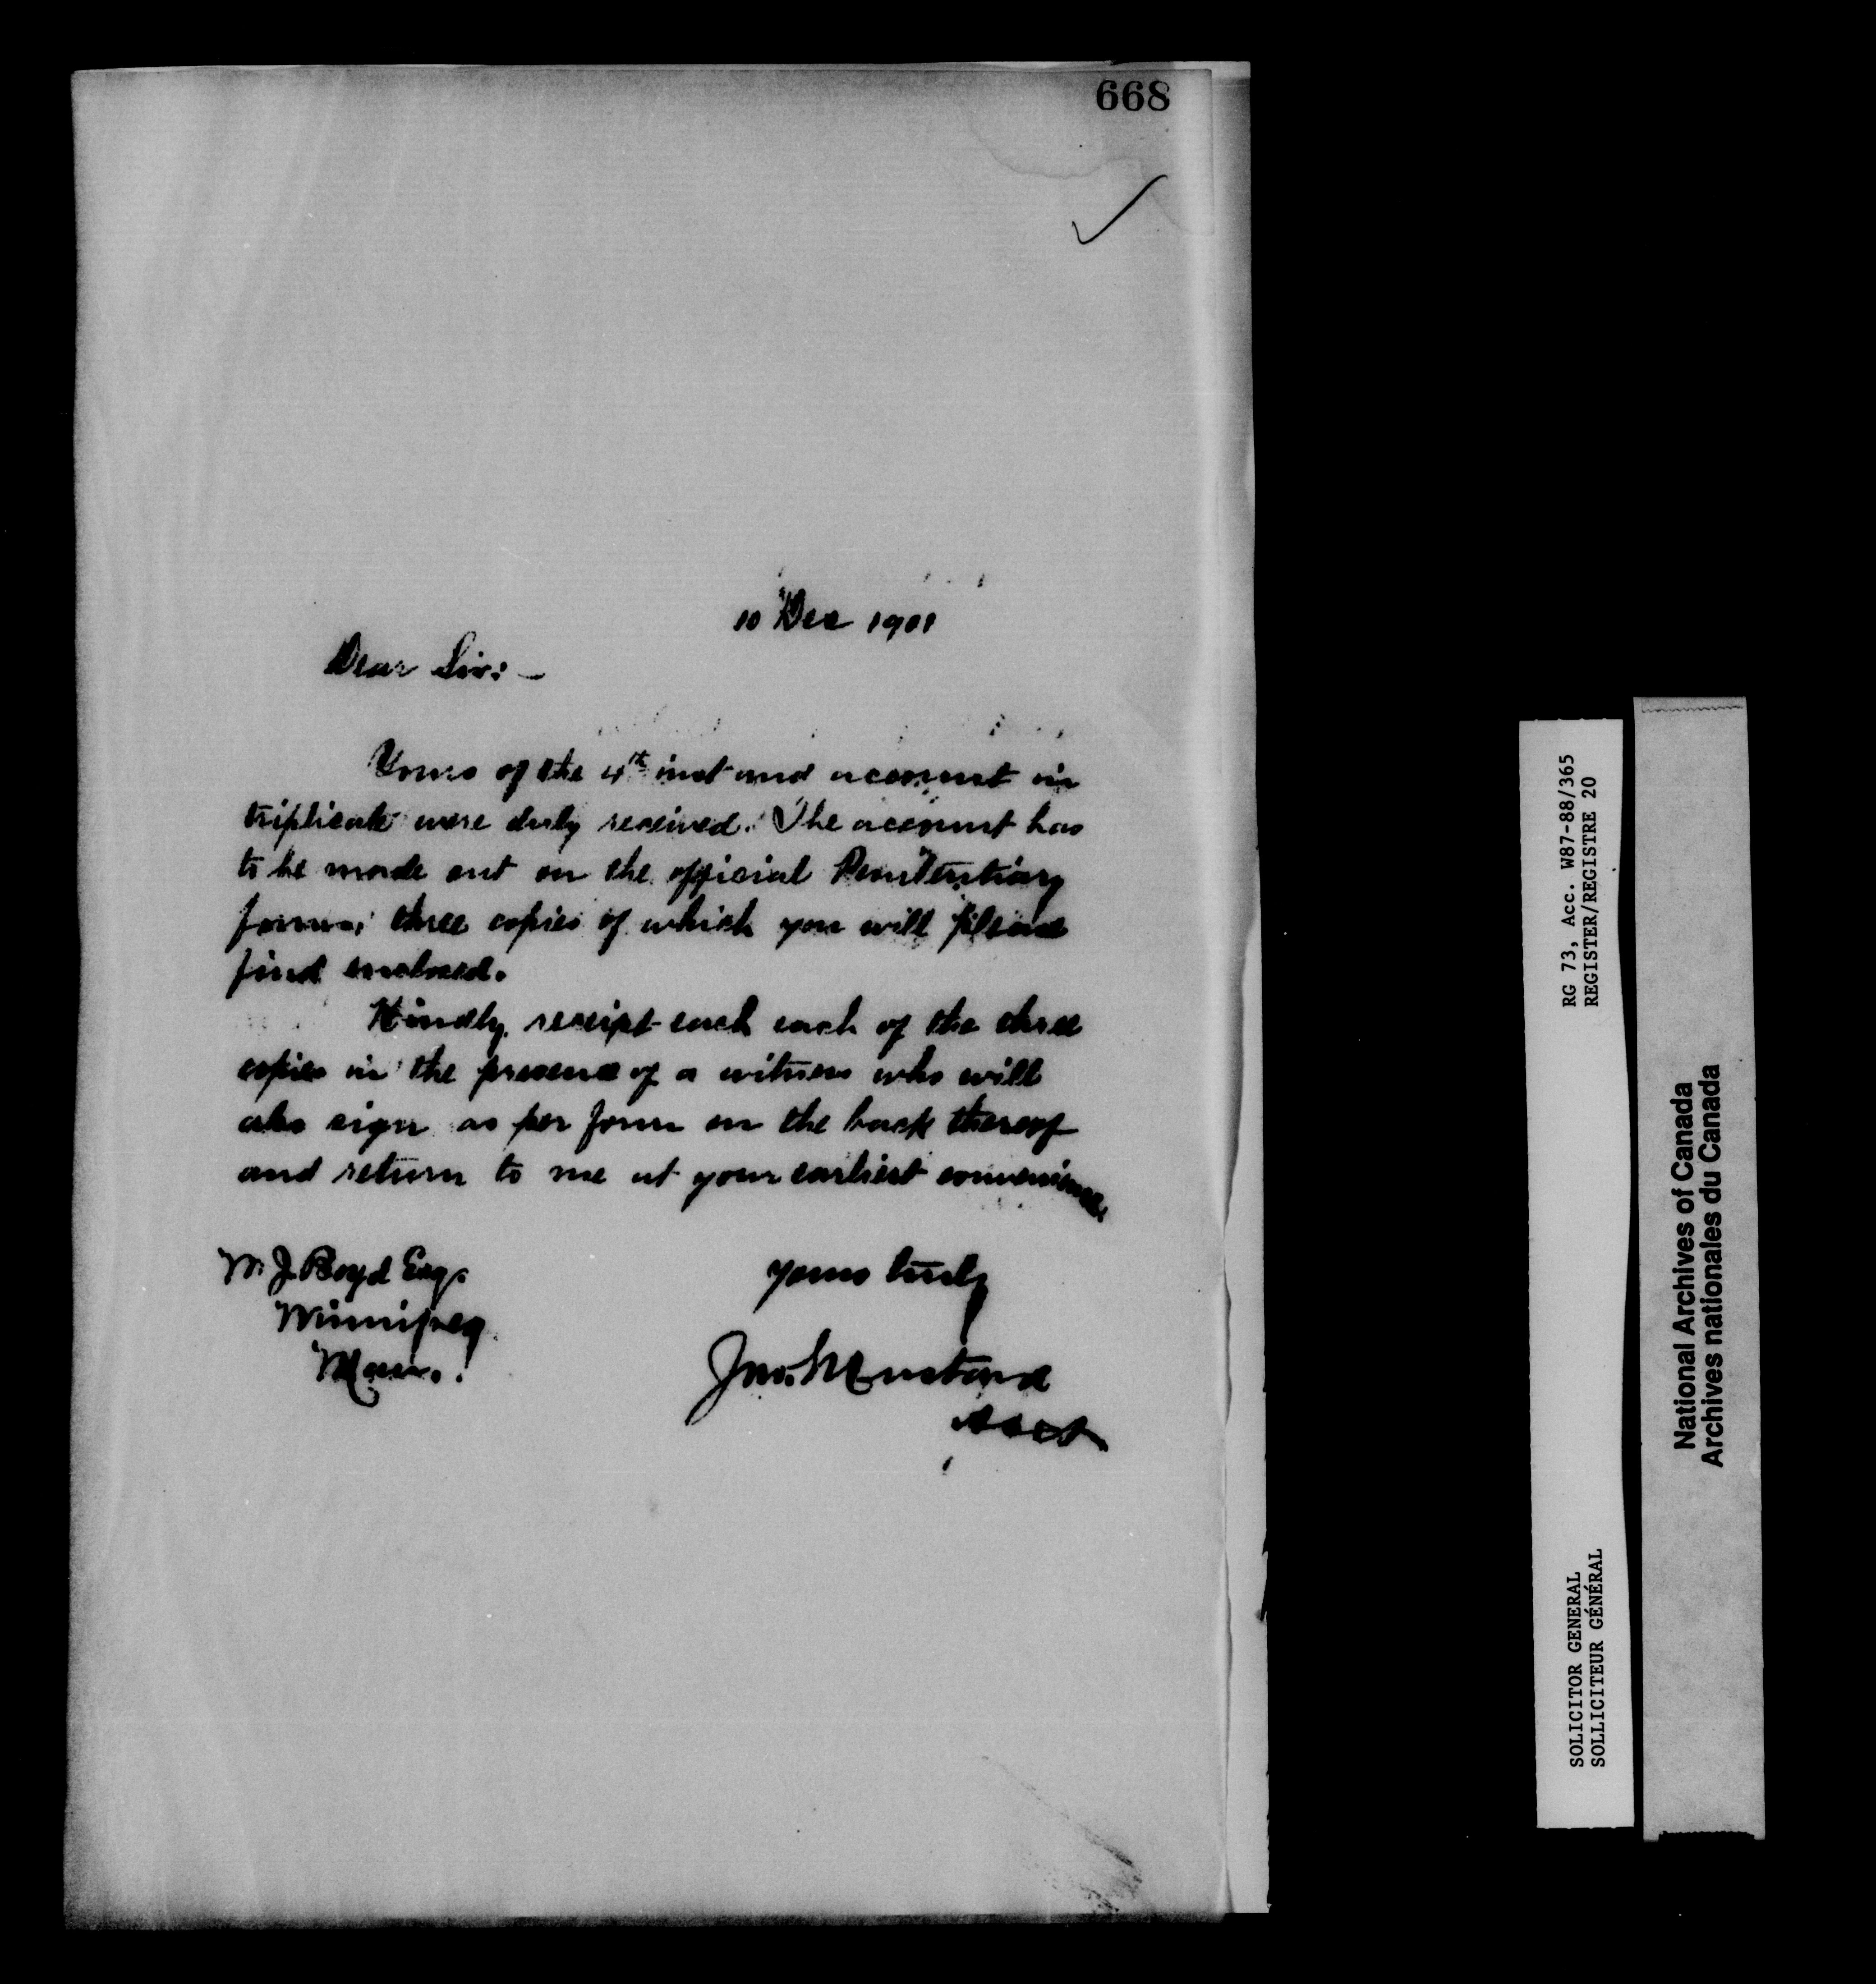 668
10 Dec 1901
Dear Sir:-
Yours of the 4th inst and account in
triplicate were duly received. The account has
to be made out on the official Penitentiary
forms, three copies of which you will please
find enclosed.
Kindly receipt each each of the three
copies in the presence of a witness who will
also sign as per form on the back thereof
and return to me at your earliest convenience.
W. J. Boyd Esq.
Winnipeg
Man.
yours truly
Jno. Mustard
Acct
RG 73, Acc. W87-88/365
REGISTER/REGISTRE 20
SOLICITOR GENERAL
SOLLICITEUR GÉNÉRAL
National Archives of Canada
Archives nationales du Canada